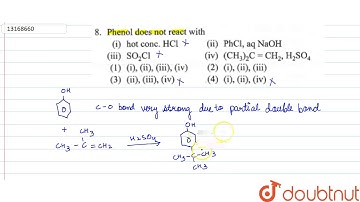 13168660
8. Phenol does not react with
(i) hot conc. HCl (ii) PhCl, aq NaOH
(iii) SO2Cl (iv) (CH3)2C = CH2, H2SO4
(1) (i), (ii), (iii) (2) (i), (ii), (iii)
(3) (ii), (iii), (iv) (4) (i), (ii), (iv)
OH
C-O bond very strong due to partial double bond
+
CH3
CH3-C=CH2
H2SO4
OH
CH3-C-CH3
CH3
doubtnut